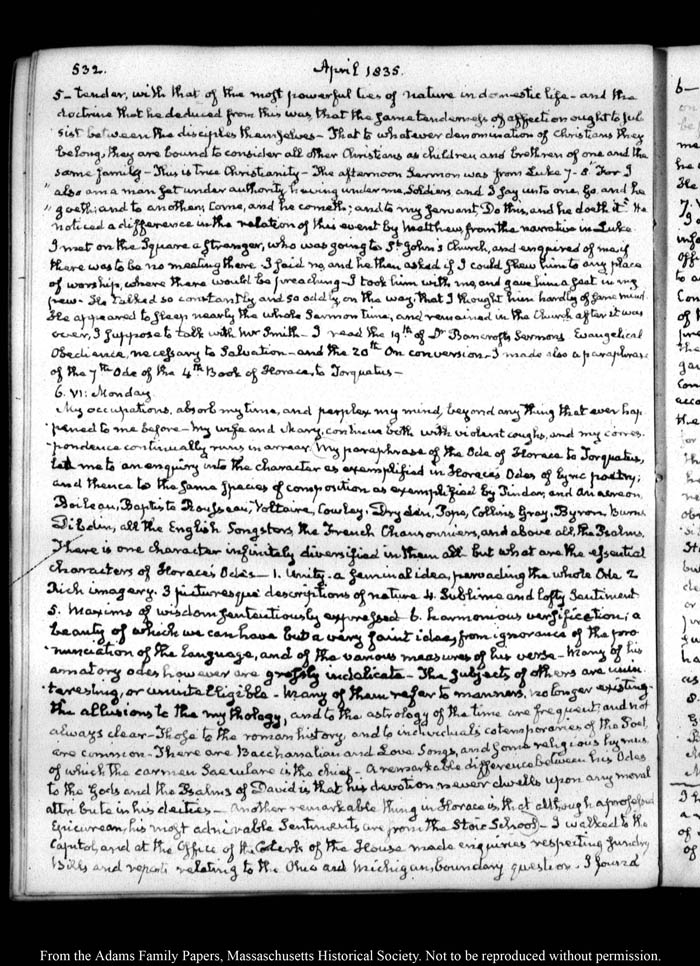 532. April 1835.
5 – tender, with that of the most powerful ties of nature in domestic life – and the
doctrine that he deduced from this was, that the same tenderness of affection ought to sub
sist between the disciples themselves – That to whatever denomination of Christians they
belong, they are bound to consider all other Christians as children and brethren of one and the
same family – This is true Christianity – The afternoon Sermon was from Luke 7–8 "For I
"also am a man set under authority, having under me, Soldiers and I say unto one, Go, and he
"goeth; and to another, Come, and he cometh; and to my servant, Do this, and he doeth it." He
noticed a difference in the relation of this event by Matthew, from the narrative in Luke
I met on the Square a stranger, who was going to St. John's Church, and enquired of me, if
there was to be no meeting there – I said no, and he then asked if I could shew him to any place
of worship, where there would be preaching – I took him with me, and gave him a seat in my
pew – He talked so constantly and so oddly, on the way, that I thought him hardly of sane mind.
He appeared to sleep nearly the whole Sermon time, and remained in the Church after it was
over, I suppose to talk with Mr Smith – I read the 19th of Dr. Bancroft's Sermons Evangelical
Obedience, necessary to Salvation – and the 20th On conversion – I made also a paraphrase
of the 7th Ode of the 4th Book of Horace, to Torquatus –
6. VI: Monday
My occupations, absorb my time, and perplex my mind, beyond any thing that ever hap
pened to me before – My wife and Mary, continue both with violent coughs, and my corres
pondence continually runs in arrear. My paraphrase of the Ode of Horace to Torquatus,
led me to an enquiry into the character as exemplified in Horace's Odes of Lyric poetry;
and thence to the same species of composition as exemplified by Pindar, and Anacreon,
Boileau, Baptiste Rousseau, Voltaire, Cowley, Dryden, Pope, Collins, Gray, Byron, Burns
Dibdin, all the English Songsters, the French Chansonniers, and above all, the Psalms.
There is one character infinitely diversified in them all but what are the essential
characters of Horace's Odes – 1. Unity – a seminal idea, pervading the whole Ode 2
Rich imagery. 3 picturesque descriptions of nature 4. Sublime and lofty Sentiment
5. Maxims of wisdom sententiously expressed 6. harmonious versification; a
beauty of which we can have but a very faint idea, from ignorance of the pro
nunciation of the Language, and of the various measures of his verse – Many of his
amatory odes however are grossly indelicate – The subjects of others are unin
teresting, or unintelligible – Many of them refer to manners, no longer existing –
the allusions to the mythology, and to the astrology of the time are frequent, and not
always clear – Those to the roman history, and to individuals cotemporaries of the Poet
are common – There are Bacchanalian and Love Songs, and some religious hymns
of which the carmen Saeculare is the chief – A remarkable difference between his Odes
to the Gods and the Psalms of David is that his devotion never dwells upon any moral
attribute in his deities – Another remarkable thing in Horace is, that although a professed
Epicurean, his most admirable Sentiments are from the Stoic School – I walked to the
Capitol, and at the Office of the Clerk of the House made enquiries respecting sundry
Bills and reports relating to the Ohio and Michigan, boundary question. I found
From the Adams Family Papers, Massachusetts Historical Society. Not to be reproduced without permission.